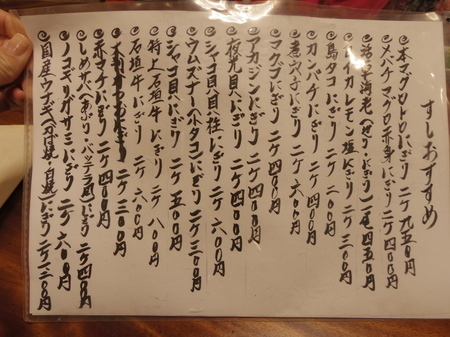 すしおすすめ
本マグロトロにぎり 二ケ 九五〇円
メバチマグロ赤身にぎり 二ケ 四〇〇円
活車海老(ゼリ・にぎり) 一尾 四五〇円
イカレモン塩にぎり 二ケ 三〇〇円
島タコにぎり 二ケ 二〇〇円
カンパチにぎり 二ケ 六〇〇円
煮穴子にぎり 二ケ 六〇〇円
マクブにぎり 二ケ 四〇〇円
アカジンにぎり 二ケ 四〇〇円
夜光貝にぎり 二ケ 六〇〇円
シャコ貝貝柱にぎり 二ケ 四〇〇円
ウムズナー(ベトタコ)にぎり 二ケ 三〇〇円
シャコ貝にぎり 二ケ 五〇〇円
特上石垣牛にぎり 二ケ 八〇〇円
石垣牛にぎり 二ケ 六〇〇円
二ケ 三〇〇円
赤マチにぎり 二ケ 四〇〇円
しめサバ(あぶり・バッテラ風)にぎり 二ケ 四〇〇円
ノコギリガザミにぎり 二ケ 六〇〇円
国産ウナギ(付焼・白焼)にぎり 二ケ 三〇〇円